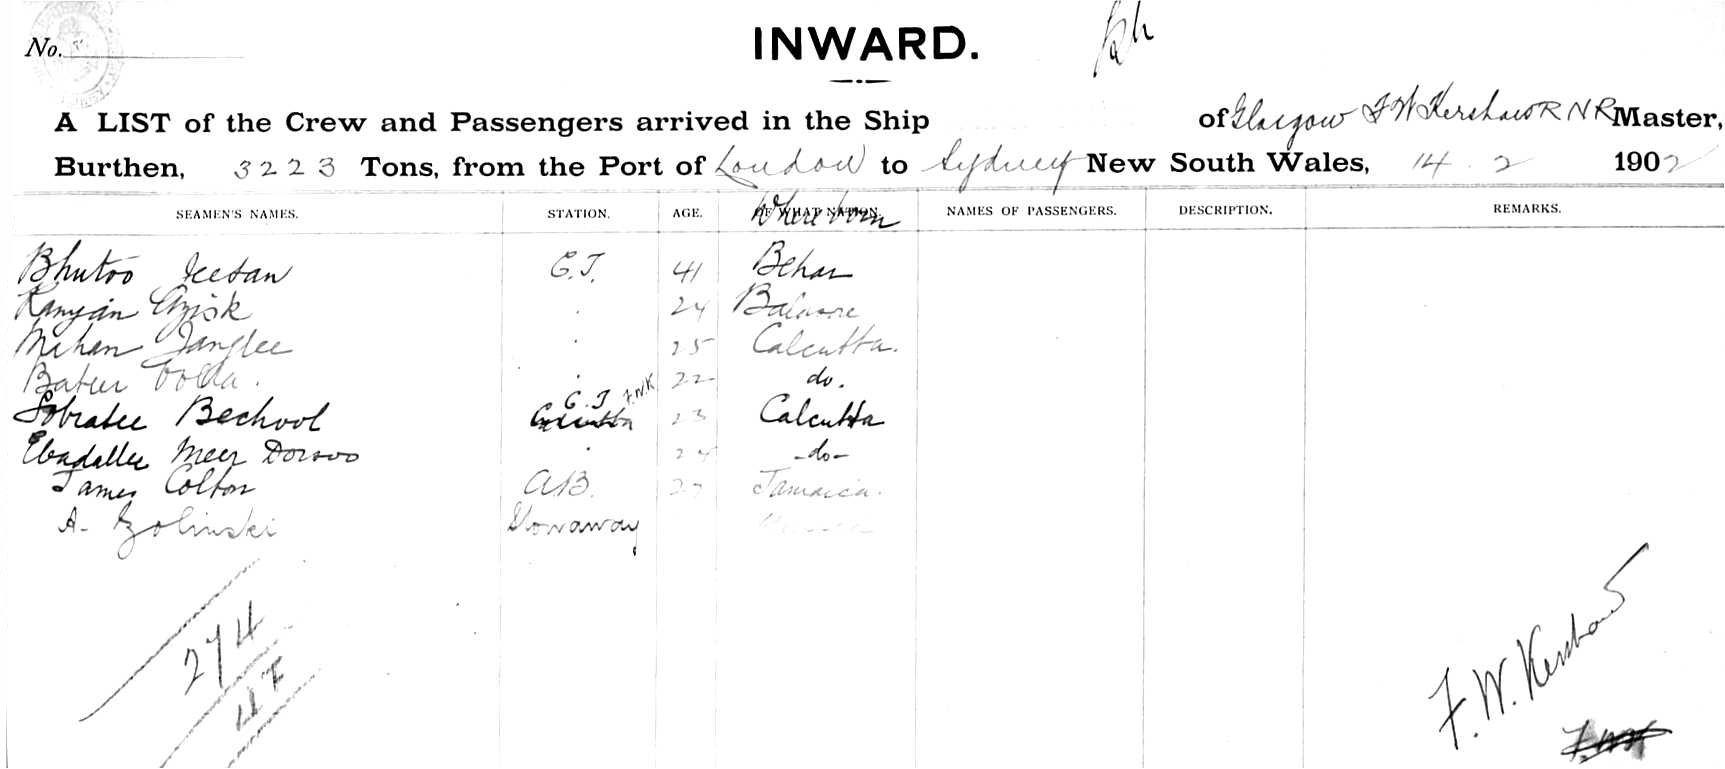 INWARD.
No.
A LIST of the Crew and Passengers arrived in the Ship of Glasgow F W Kershaw R N R Master,
Burthen, 3223 Tons, from the Port of London to Sydney New South Wales, 14 . 2 1902
Where born
SEAMEN'S NAMES. STATION. AGE. OF WHAT NATION. NAMES OF PASSENGERS. DESCRIPTION. REMARKS.
Bhutoo C.T. 41 Behar
Ramjan 24 Balasore
Mihan Janglee 25 Calcutta.
22 do.
C.T F.W.K
Sobratee Bechool Calcutta 23 Calcutta
Ebadallee Meer -do-
James Colton A.B. 27 Jamaica.
A- Stowaway
274
F. W. Kershaw